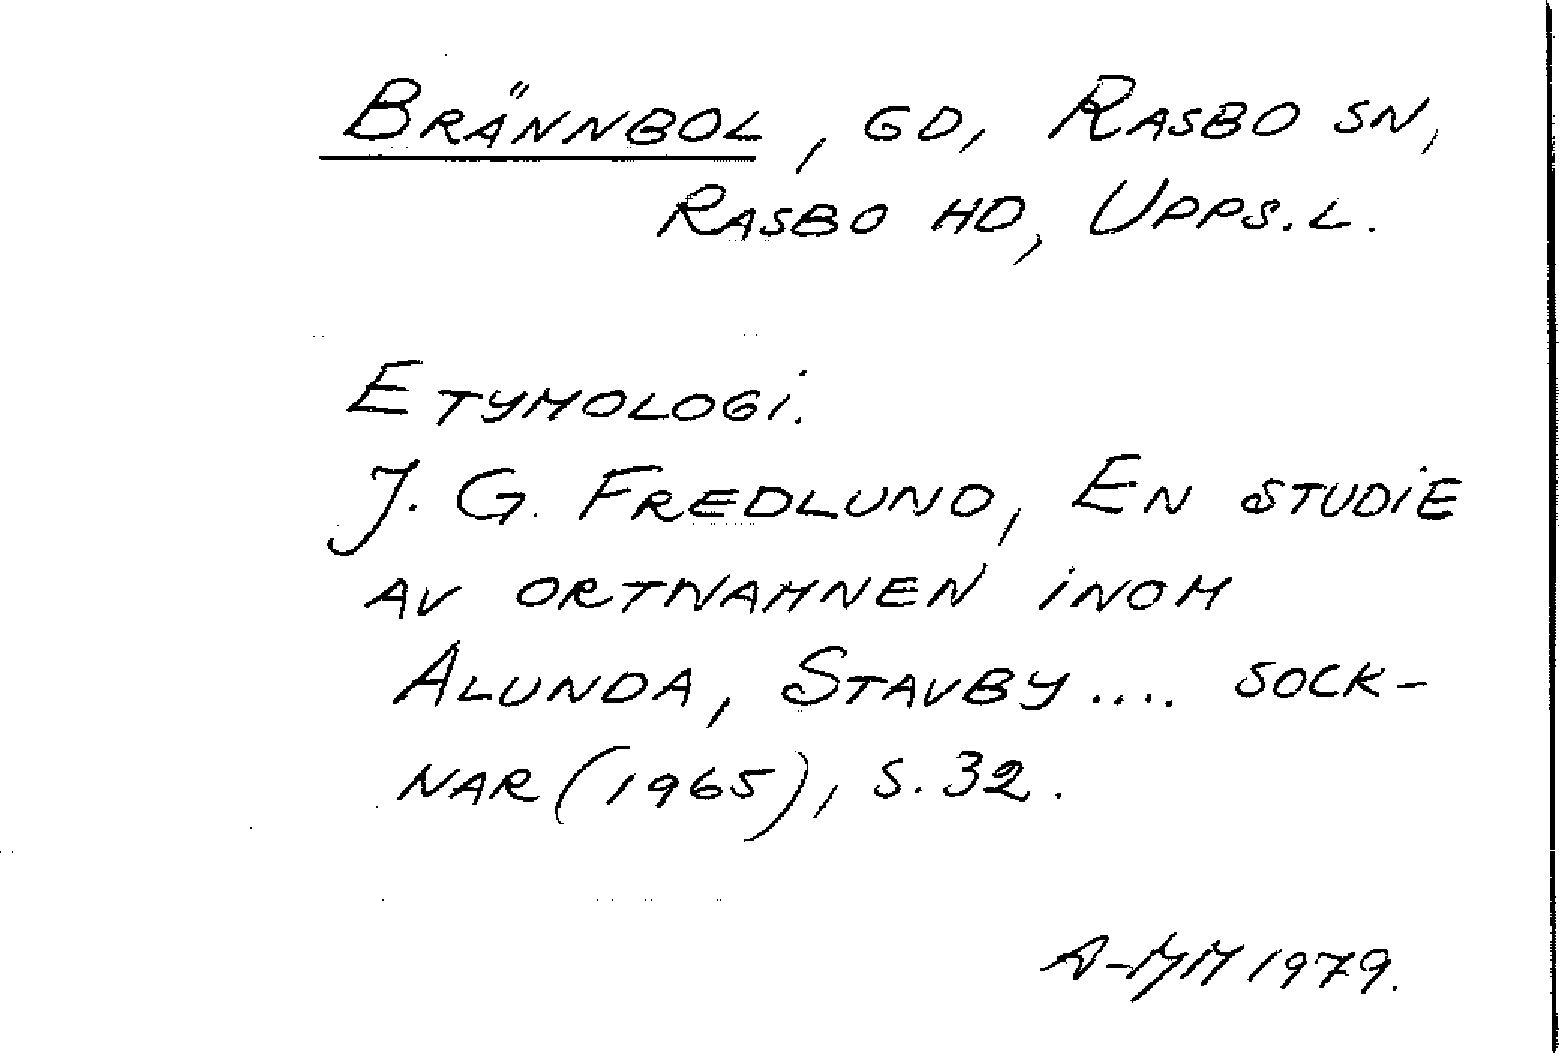 BRÄNNBOL, GD, RASBO SN,
RASBO HD, UPPS.L.
ETYMOLOGI.
J. G. FREDLUND, EN STUDIE
AV ORTNAMNEN INOM
ALUNDA, STAVBY.... SOCK-
NAR (1965), S. 32.
A-MM 1979.